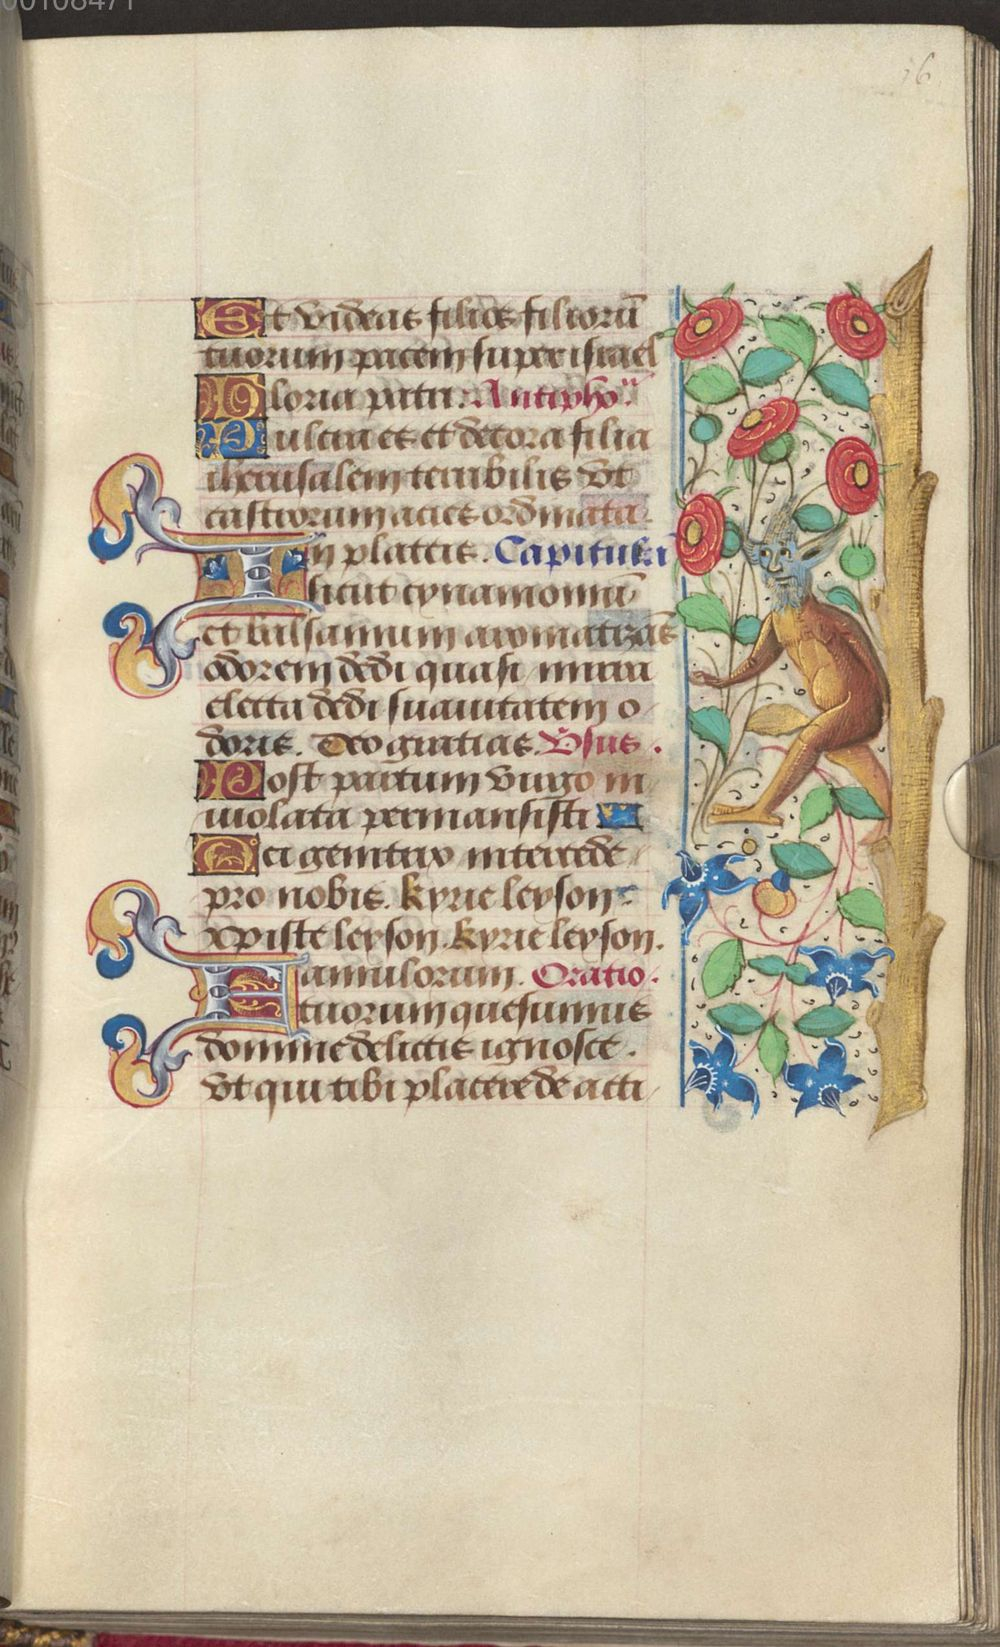 00108471
16
Et videas filios filiorũ
tuorum pacem super israel
Gloria patri. Antipho"
Pulcra es et decora filia
iherusalem terribilis vt
castrorum acies ordinata.
In plateis. Capitulũ
sicut cynamomũ
et balsamum aromatizãs
odorem dedi quasi mirra
electa dedi suauitatem o
doris. Deo gratias. V̄sus.
Post partum virgo in
uiolata permansisti
Dei genitrix intercede
pro nobis. kyrie leyson.
xp̄iste leyson. kyrie leyson.
Famulorum. Oratio.
tuorum quesumus
domine delictis ignosce.
vt qui tibi placere de acti